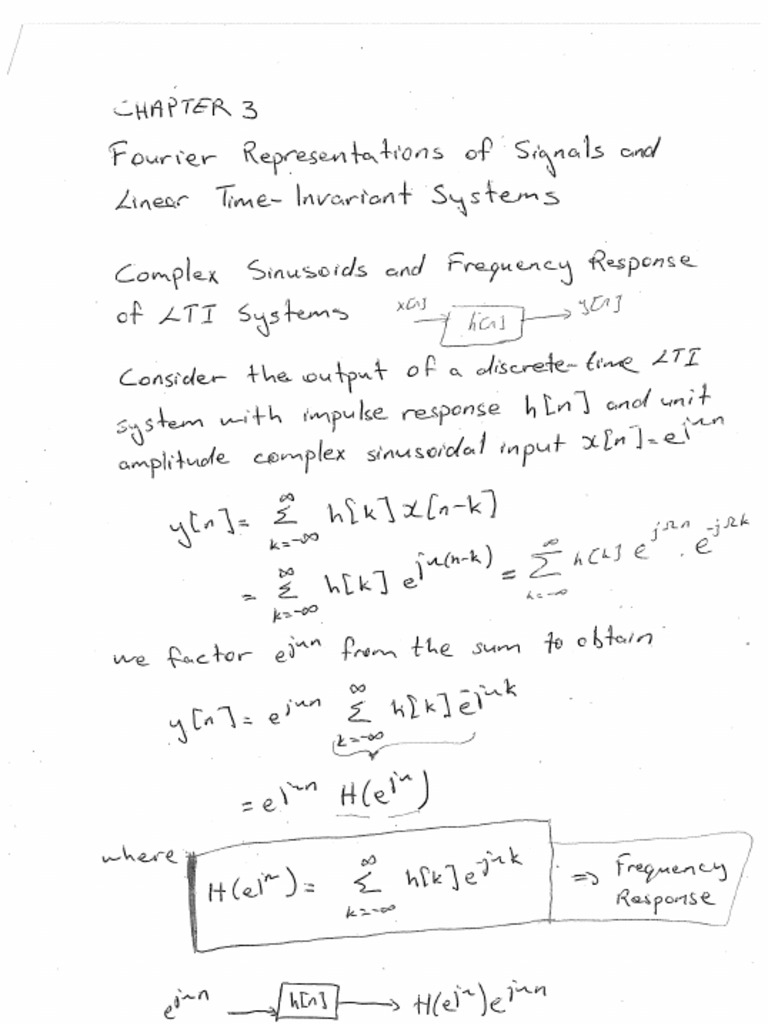 CHAPTER 3
Fourier Representations of Signals and
Linear Time-Invariant Systems
Complex Sinusoids and Frequency Response
of LTI Systems x[n] h[n] y[n]
Consider the output of a discrete-time LTI
system with impulse response h[n] and unit
amplitude complex sinusoidal input x[n]=e^{jΩn}
y[n]= ∑_{k=-∞}^{∞} h[k] x[n-k]
= ∑_{k=-∞}^{∞} h[k] e^{jΩ(n-k)} = ∑_{k=-∞}^{∞} h[k] e^{jΩn} . e^{-jΩk}
we factor e^{jΩn} from the sum to obtain
y[n]= e^{jΩn} ∑_{k=-∞}^{∞} h[k] e^{-jΩk}
= e^{jΩn} H(e^{jΩ})
where
H(e^{jΩ}) = ∑_{k=-∞}^{∞} h[k] e^{-jΩk} ⇒ Frequency
Response
e^{jΩn} → h[n] → H(e^{jΩ})e^{jΩn}